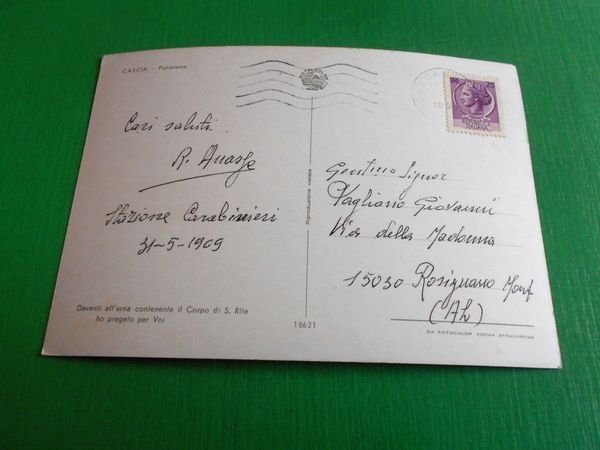 CASCIA - Panorama
Cari saluti
R.
Stazione Carabinieri
31-5-1969
Davanti all'urna contenente il Corpo di S. Rita
ho pregato per Voi
18621
Riproduzione vietata
Gent.mo Signor
Vagliano Giovanni
Via della Madonna
15030 Rosignano Monf
(AL)
DA FOTOCOLOR KODAK EKTACHROME